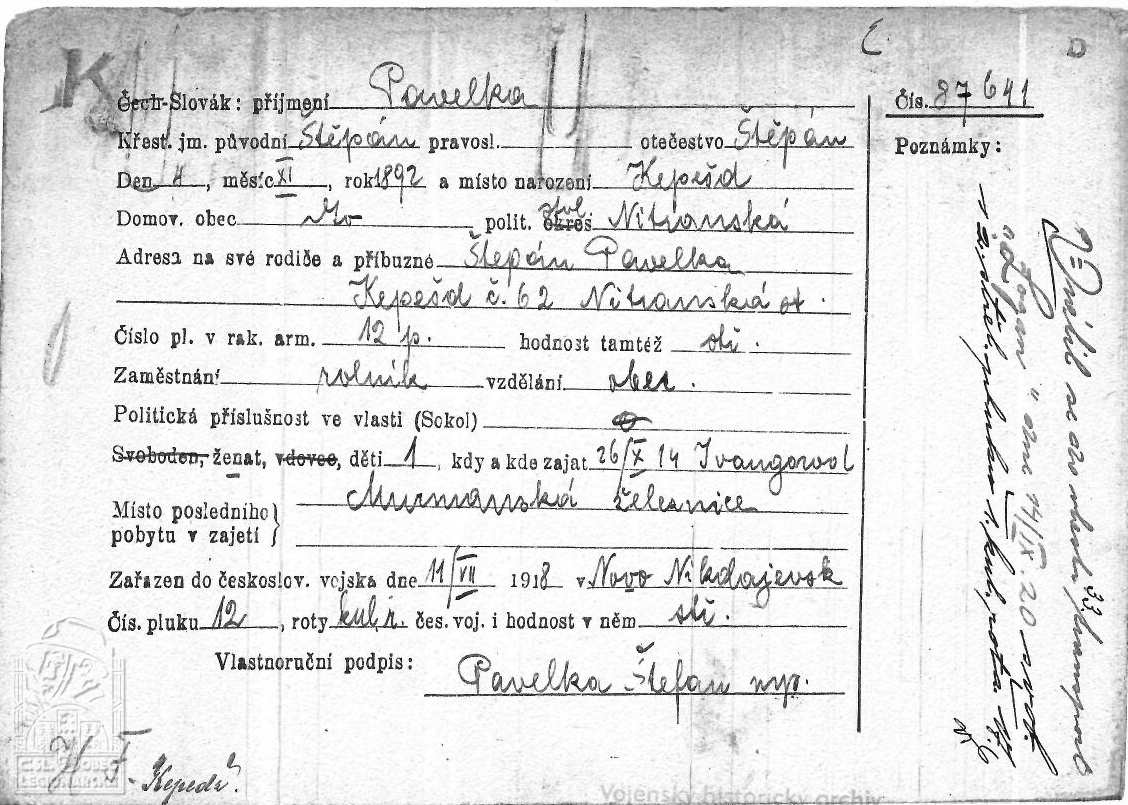 K
E.
D
Čech-Slovák: příjmení Pavelka
Čís. 87641
Křest. jm. původní Štěpán pravosl. otečestvo Štěpán
Poznámky:
Den 4, měsíc XI, rok 1892 a místo narození Kepešd
Domov. obec polit. okres stol. Nitranská
Adresa na své rodiče a příbuzné Štepán Pavelka
Kepešd č. 62 Nitranská st.
Číslo pl. v rak. arm. 12 p. hodnost tamtéž stř.
Zaměstnání rolník vzdělání obec.
Politická příslušnost ve vlasti (Sokol) 0
Svoboden, ženat, vdovec, děti 1, kdy a kde zajat 26/X 14 Ivangorod
Místo posledního pobytu v zajetí } Murmanská železnice
Zařazen do českoslov. vojska dne 11/VII 1918 v Novo Nikolajevsk
Čís. pluku 12, roty kul. r. čes. voj. i hodnost v něm stř.
Vlastnoruční podpis: Pavelka Štefan mp.
Vrátil se do vlasti 33
"Logan" dne 14/IX. 20
pluku 1. kul. rota
ČSL. OBEC
LEGIONÁŘSKÁ
Vojenský historický archiv